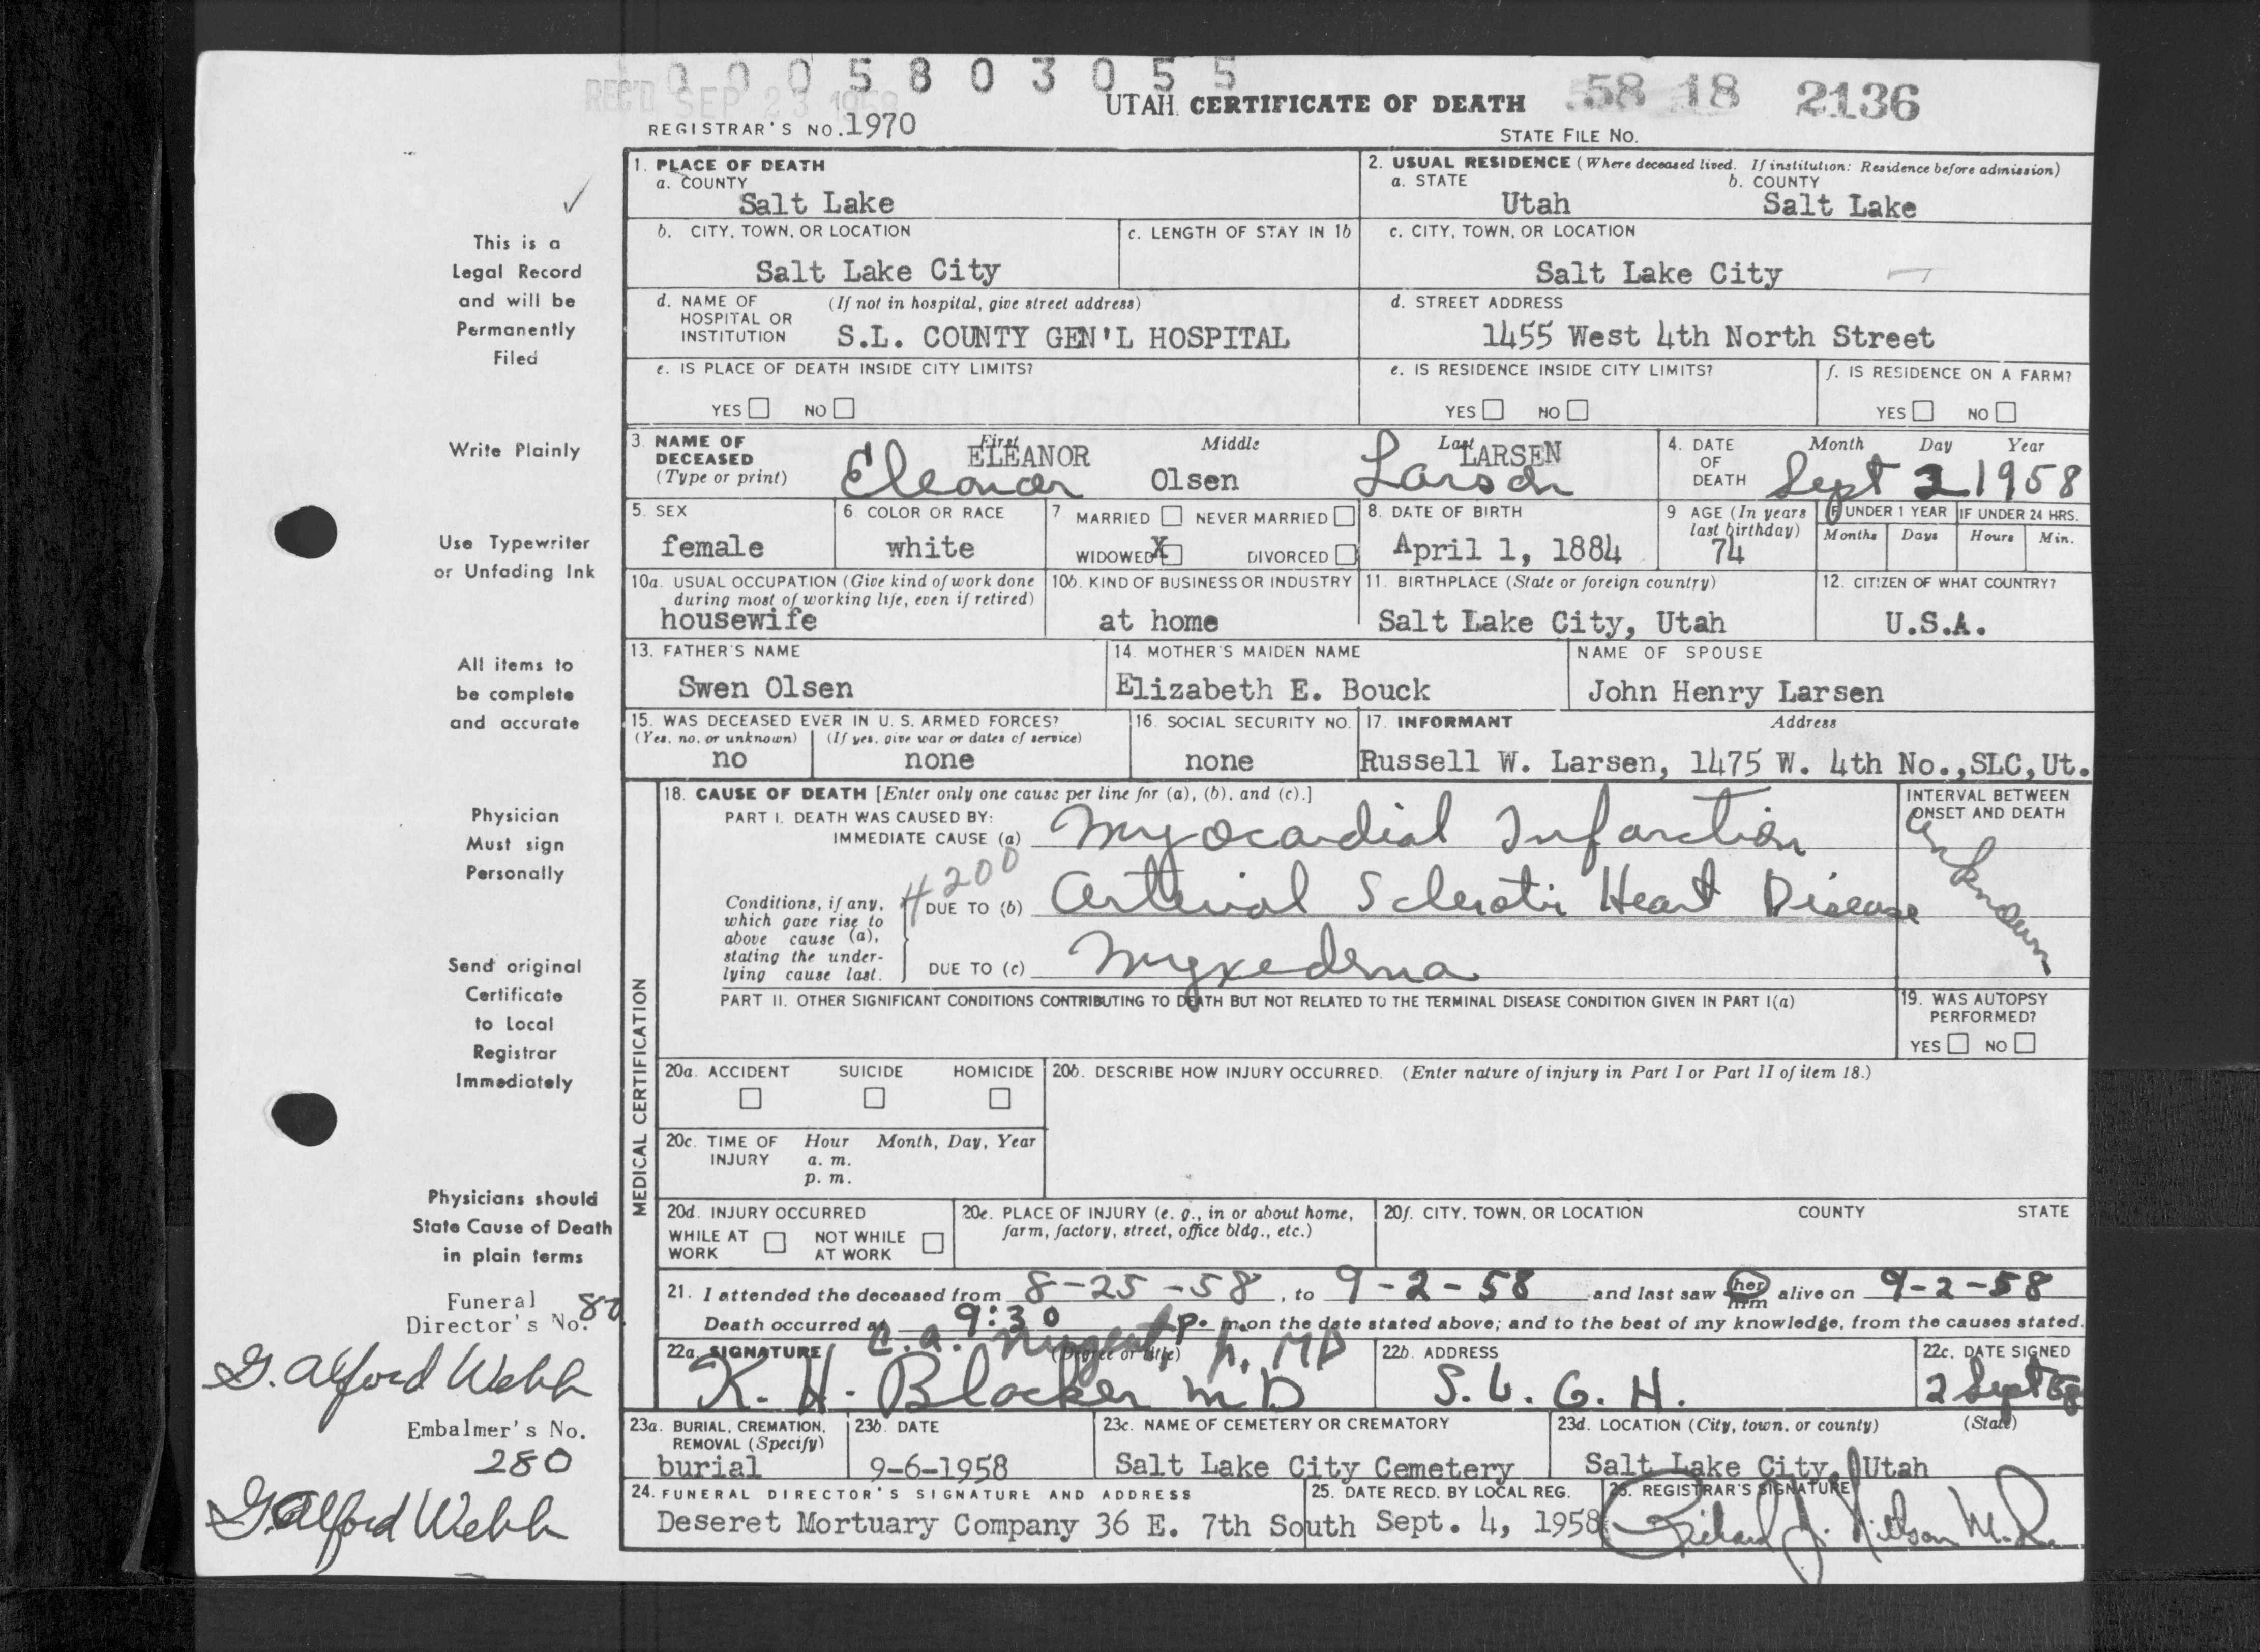 0 0 0 5 8 0 3 0 5 5
REC'D SEP 23 1958
UTAH CERTIFICATE OF DEATH 58 18 2136
REGISTRAR'S NO. 1970
STATE FILE NO.
1. PLACE OF DEATH
a. COUNTY
Salt Lake
2. USUAL RESIDENCE (Where deceased lived. If institution: Residence before admission)
a. STATE b. COUNTY
Utah Salt Lake
b. CITY, TOWN, OR LOCATION
Salt Lake City
c. LENGTH OF STAY IN 1b
c. CITY, TOWN, OR LOCATION
Salt Lake City
d. NAME OF HOSPITAL OR INSTITUTION (If not in hospital, give street address)
S.L. COUNTY GEN'L HOSPITAL
d. STREET ADDRESS
1455 West 4th North Street
e. IS PLACE OF DEATH INSIDE CITY LIMITS?
YES NO
e. IS RESIDENCE INSIDE CITY LIMITS?
YES NO
f. IS RESIDENCE ON A FARM?
YES NO
3. NAME OF DECEASED (Type or print)
First Middle Last
ELEANOR LARSEN
Eleanor Olsen Larsen
4. DATE OF DEATH
Month Day Year
Sept 2 1958
5. SEX
female
6. COLOR OR RACE
white
7 MARRIED NEVER MARRIED
WIDOWED X DIVORCED
8. DATE OF BIRTH
April 1, 1884
9 AGE (In years last birthday)
74
IF UNDER 1 YEAR IF UNDER 24 HRS.
Months Days Hours Min.
10a. USUAL OCCUPATION (Give kind of work done during most of working life, even if retired)
housewife
10b. KIND OF BUSINESS OR INDUSTRY
at home
11. BIRTHPLACE (State or foreign country)
Salt Lake City, Utah
12. CITIZEN OF WHAT COUNTRY?
U.S.A.
13. FATHER'S NAME
Swen Olsen
14. MOTHER'S MAIDEN NAME
Elizabeth E. Bouck
NAME OF SPOUSE
John Henry Larsen
15. WAS DECEASED EVER IN U. S. ARMED FORCES?
(Yes, no, or unknown) (If yes, give war or dates of service)
no none
16. SOCIAL SECURITY NO.
none
17. INFORMANT Address
Russell W. Larsen, 1475 W. 4th No.,SLC,Ut.
MEDICAL CERTIFICATION
18. CAUSE OF DEATH [Enter only one cause per line for (a), (b), and (c).]
PART I. DEATH WAS CAUSED BY:
IMMEDIATE CAUSE (a) Myocardial Infarction
4200
Conditions, if any, which gave rise to above cause (a), stating the underlying cause last.
DUE TO (b) Arterial Sclerotic Heart Disease
DUE TO (c) Myxedema
INTERVAL BETWEEN ONSET AND DEATH
unknown
PART II. OTHER SIGNIFICANT CONDITIONS CONTRIBUTING TO DEATH BUT NOT RELATED TO THE TERMINAL DISEASE CONDITION GIVEN IN PART I(a)
19. WAS AUTOPSY PERFORMED?
YES NO
20a. ACCIDENT SUICIDE HOMICIDE
20b. DESCRIBE HOW INJURY OCCURRED. (Enter nature of injury in Part I or Part II of item 18.)
20c. TIME OF INJURY Hour Month, Day, Year
a. m.
p. m.
20d. INJURY OCCURRED
WHILE AT WORK NOT WHILE AT WORK
20e. PLACE OF INJURY (e. g., in or about home, farm, factory, street, office bldg., etc.)
20f. CITY, TOWN, OR LOCATION COUNTY STATE
21. I attended the deceased from 8-25-58, to 9-2-58 and last saw her him alive on 9-2-58
Death occurred at 9:30 p. m. on the date stated above; and to the best of my knowledge, from the causes stated.
22a. SIGNATURE (Degree or title)
C. A. Nugent, MD
K. H. Blacker M D
22b. ADDRESS
S. L. G. H.
22c. DATE SIGNED
2 Sept 58
23a. BURIAL, CREMATION, REMOVAL (Specify)
burial
23b. DATE
9-6-1958
23c. NAME OF CEMETERY OR CREMATORY
Salt Lake City Cemetery
23d. LOCATION (City, town, or county) (State)
Salt Lake City, Utah
24. FUNERAL DIRECTOR'S SIGNATURE AND ADDRESS
Deseret Mortuary Company 36 E. 7th South
25. DATE RECD. BY LOCAL REG.
Sept. 4, 1958
26. REGISTRAR'S SIGNATURE
Richard J. Nilson M.D.
This is a
Legal Record
and will be
Permanently
Filed
Write Plainly
Use Typewriter
or Unfading Ink
All items to
be complete
and accurate
Physician
Must sign
Personally
Send original
Certificate
to Local
Registrar
Immediately
Physicians should
State Cause of Death
in plain terms
Funeral
Director's No. 80
G. Alford Webb
Embalmer's No.
280
G. Alford Webb